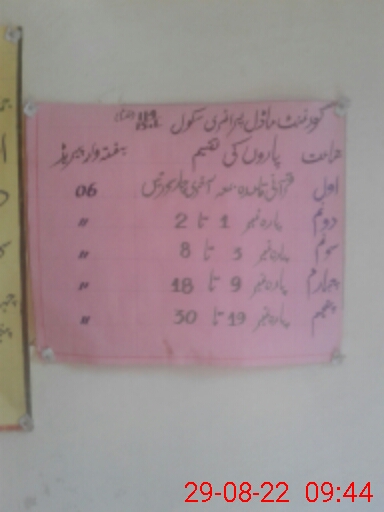 گورنمنٹ ماڈل پرائمری سکول
جماعت پاروں کی تقسیم ہفتہ وار پیریڈ
اول قرآنی قاعدہ آخری چار سورتیں 06
دوئم پارہ نمبر 1 تا 2 〃
سوئم پارہ نمبر 3 تا 8 〃
چہارم پارہ نمبر 9 تا 18 〃
پنجم پارہ نمبر 19 تا 30 〃
29-08-22 09:44